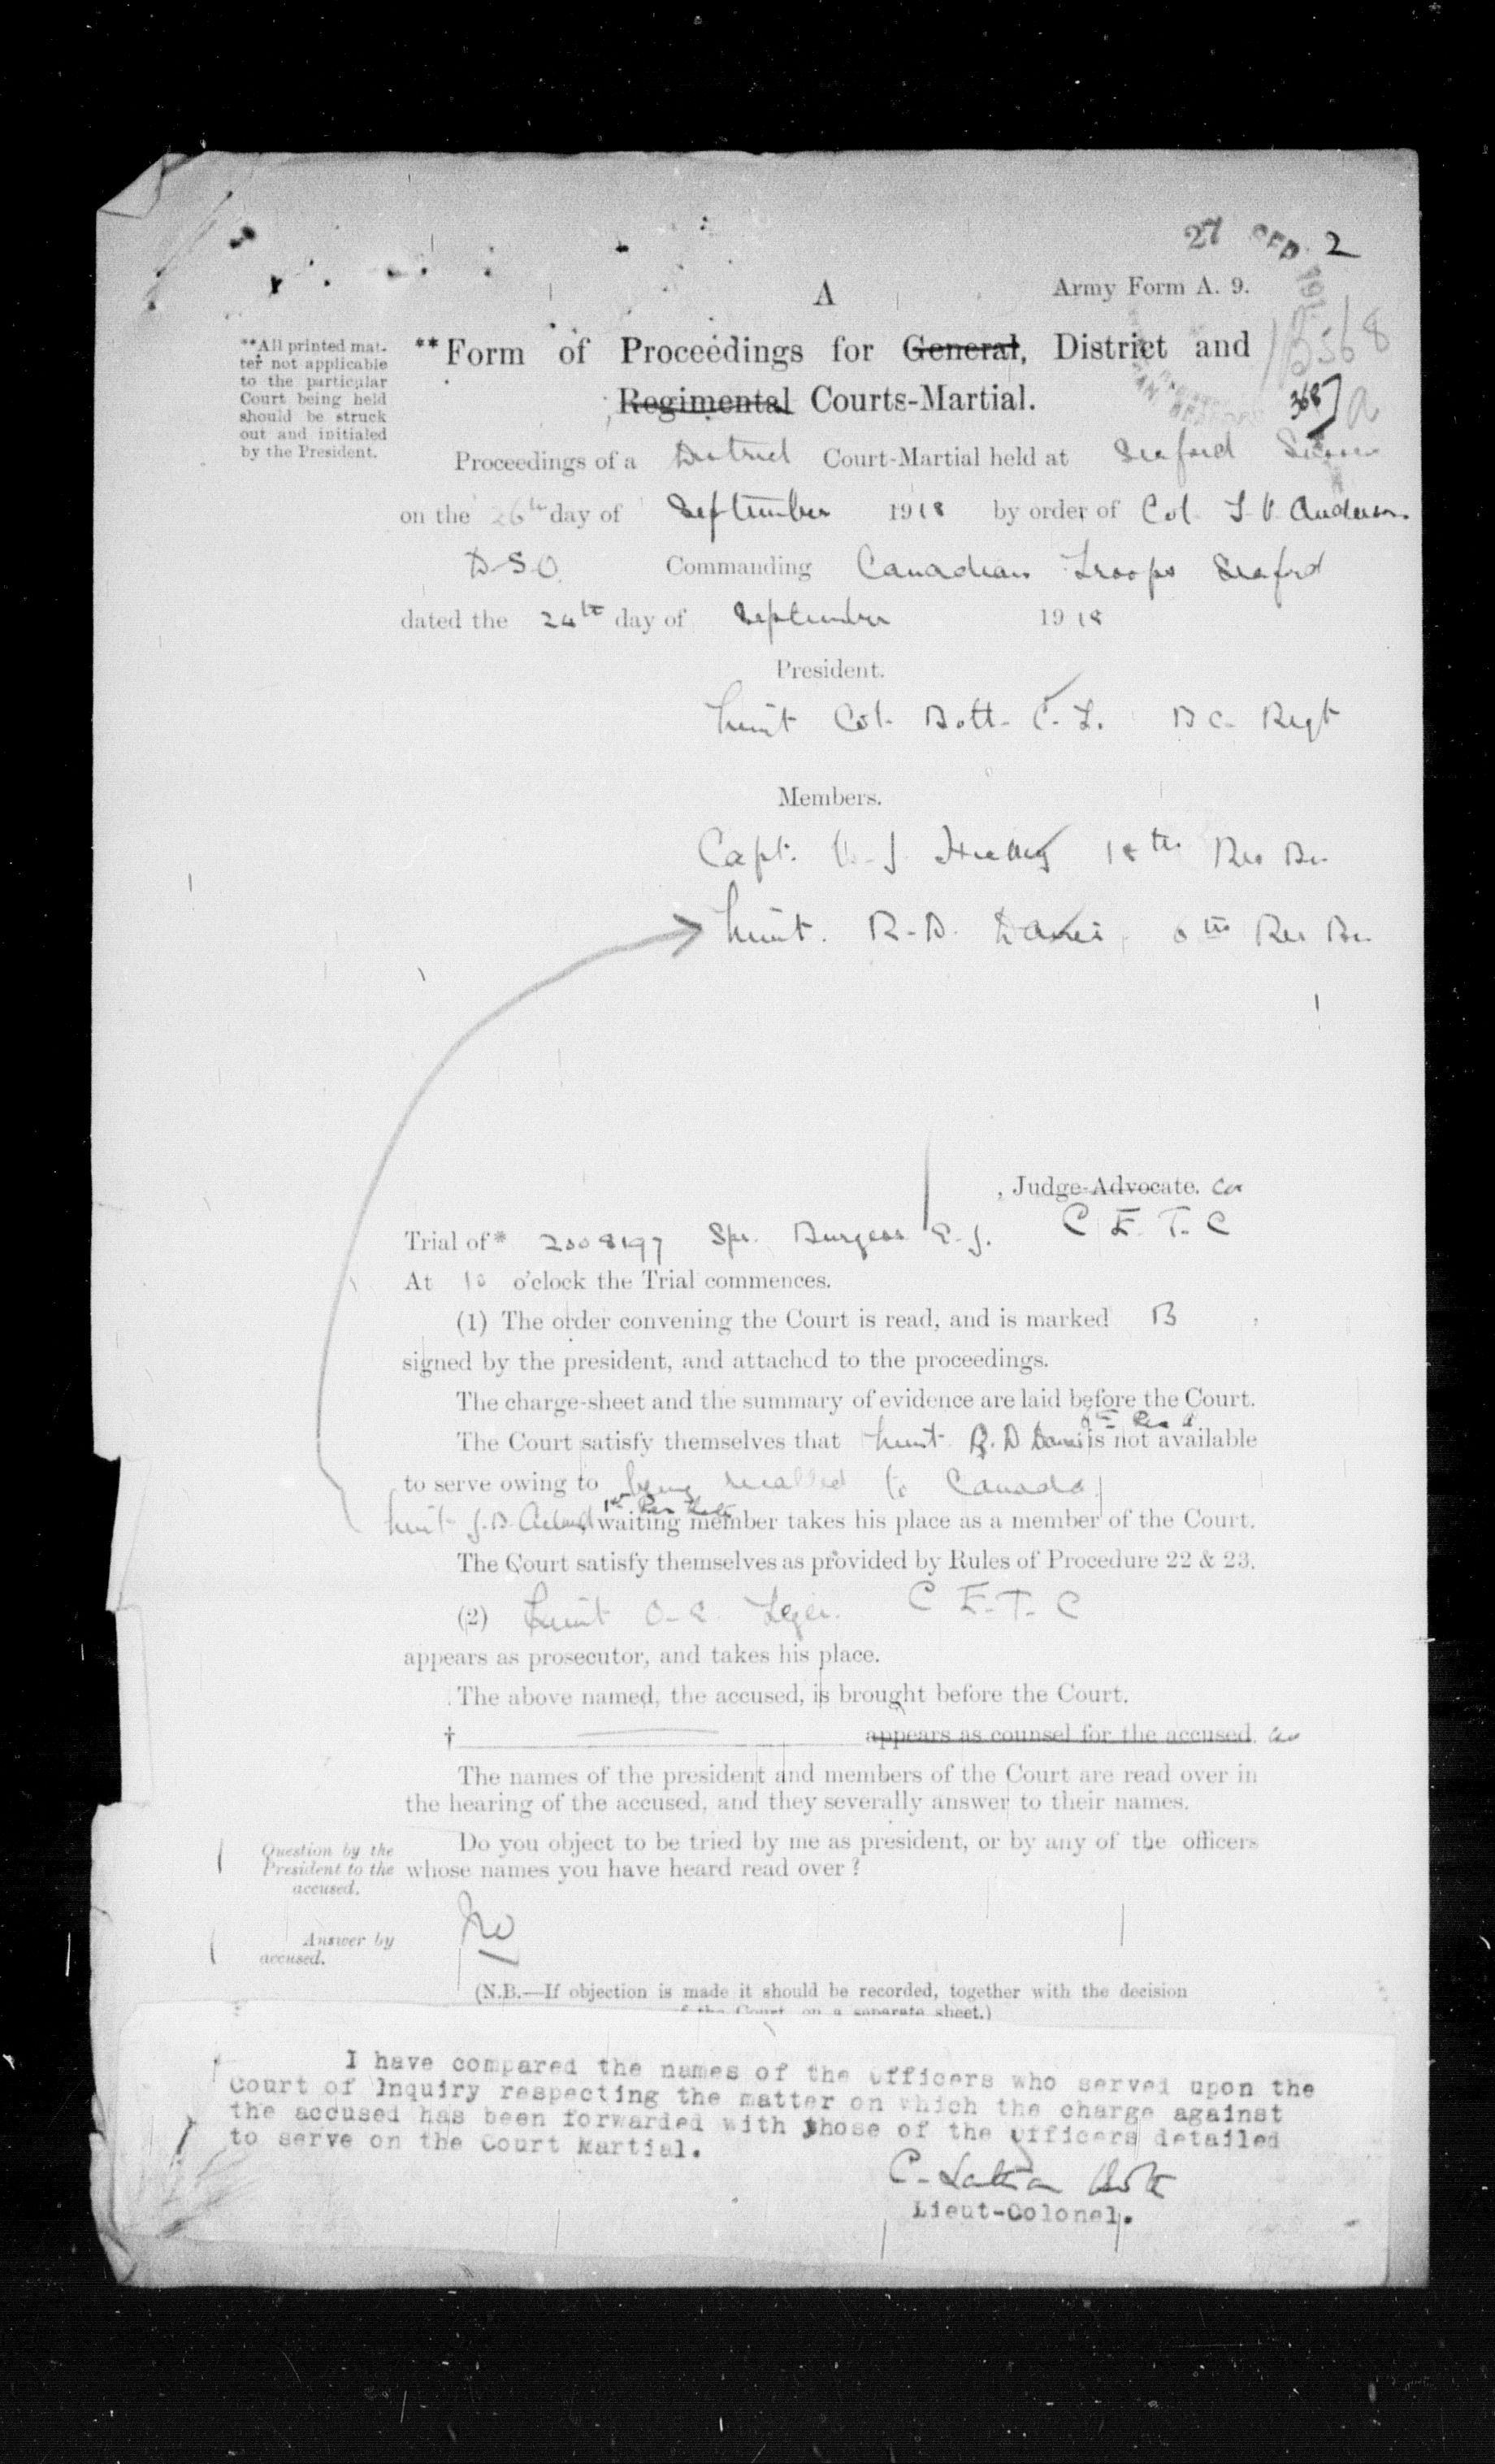 27 SEP 2
A
Army Form A. 9.
B568
368
a
**All printed mat-
ter not applicable
to the particular
Court being held
should be struck
out and initialed
by the President.
**Form of Proceedings for General, District and
Regimental Courts-Martial.
Proceedings of a District Court-Martial held at Seaford Sussex
on the 26th day of September 1918 by order of Col. T. V. Anderson
D.S.O. Commanding Canadian Troops Seaford
dated the 24th day of September 1918
President.
Lieut Col. Bott. C. L. B C. Regt
Members.
Capt. 18th Res Bn
Lieut. R. D. Davis, 6th Res Bn
, Judge-Advocate.
Trial of* 2008197 Spr. Burgess E. J. C E. T. C
At 10 o'clock the Trial commences.
(1) The order convening the Court is read, and is marked B
signed by the president, and attached to the proceedings.
The charge-sheet and the summary of evidence are laid before the Court.
The Court satisfy themselves that Lieut. R. D Davis is not available
to serve owing to being recalled to Canada
Lieut J. D. waiting member takes his place as a member of the Court.
The Court satisfy themselves as provided by Rules of Procedure 22 & 23.
(2) Lieut O. E. Leger. C E. T. C
appears as prosecutor, and takes his place.
The above named, the accused, is brought before the Court.
† appears as counsel for the accused.
The names of the president and members of the Court are read over in
the hearing of the accused, and they severally answer to their names.
Question by the
President to the
accused.
Do you object to be tried by me as president, or by any of the officers
whose names you have heard read over?
Answer by
accused.
No
(N.B.—If objection is made it should be recorded, together with the decision
of the Court, on a separate sheet.)
I have compared the names of the Officers who served upon the
Court of Inquiry respecting the matter on which the charge against
the accused has been forwarded with those of the Officers detailed
to serve on the Court Martial.
C. Bott
Lieut-Colonel.